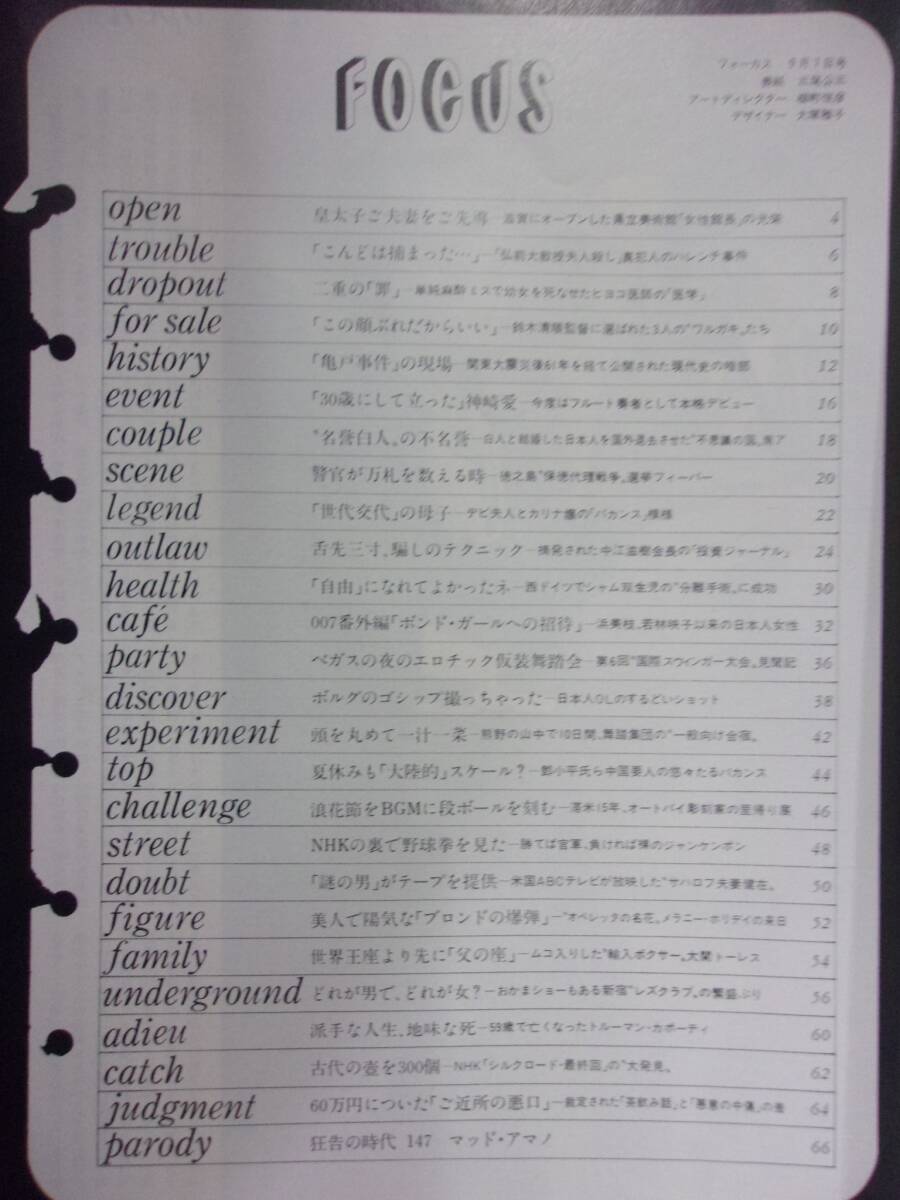 FOCUS
フォーカス 9月7日号
表紙 三尾公三
アートディレクター
デザイナー 大塚雅子
open 皇太子ご夫妻をご先導―滋賀にオープンした県立美術館“女性館長”の光栄 4
trouble 「こんどは捕まった…」―「弘前大教授夫人殺し」真犯人のハレンチ事件 6
dropout 二重の「罪」―単純麻酔ミスで幼女を死なせたヒヨコ医師の「医学」 8
for sale 「この顔ぶれだからいい」―鈴木清順監督に選ばれた3人の“ワルガキ„たち 10
history 「亀戸事件」の現場―関東大震災後61年を経て公開された現代史の暗部 12
event 「30歳にして立った」神崎愛―今度はフルート奏者として本格デビュー 16
couple “名誉白人„の不名誉―白人と結婚した日本人を国外退去させた“不思議の国„南ア 18
scene 警官が万札を数える時―徳之島“保徳代理戦争„選挙フィーバー 20
legend 「世代交代」の母子―デビ夫人とカリナ嬢の「バカンス」模様 22
outlaw 舌先三寸、騙しのテクニック―摘発された中江滋樹会長の「投資ジャーナル」 24
health 「自由」になれてよかったネ―西ドイツでシャム双生児の“分離手術„に成功 30
café 007番外編「ボンド・ガールへの招待」―浜美枝、若林映子以来の日本人女性 32
party ベガスの夜のエロチック仮装舞踏会―第6回“国際スウィンガー大会„見聞記 36
discover ボルグのゴシップ撮っちゃった―日本人OLのするどいショット 38
experiment 頭を丸めて一汁一菜―熊野の山中で10日間、舞踏集団の“一般向け合宿„ 42
top 夏休みも「大陸的」スケール?―鄧小平氏ら中国要人の悠々たるバカンス 44
challenge 浪花節をBGMに段ボールを刻む―滞米15年、オートバイ彫刻家の里帰り展 46
street NHKの裏で野球拳を見た―勝てば官軍、負ければ裸のジャンケンポン 48
doubt 「謎の男」がテープを提供―米国ABCテレビが放映した“サハロフ夫妻健在„ 50
figure 美人で陽気な「ブロンドの爆弾」―“オペレッタの名花„メラニー・ホリデイの来日 52
family 世界王座より先に「父の座」―ムコ入りした“輸入ボクサー„大関トーレス 54
underground どれが男で、どれが女?―おかまショーもある新宿“レズクラブ„の繁盛ぶり 56
adieu 派手な人生、地味な死―59歳で亡くなったトルーマン・カポーティ 60
catch 古代の壺を300個―NHK「シルクロード・最終回」の“大発見„ 62
judgment 60万円についた「ご近所の悪口」―裁定された「茶飲み話」と「悪意の中傷」の差 64
parody 狂告の時代 147 マッド・アマノ 66